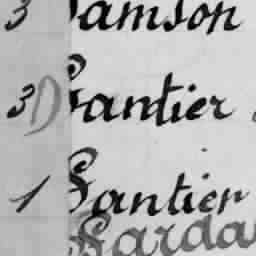 3 Samson
3) Santier
1 Santier
Sarda